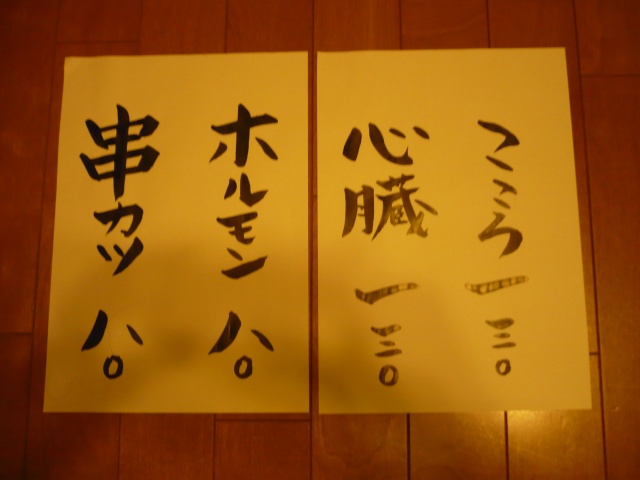 こころ 一三〇
心臓 一三〇
ホルモン 八〇
串カツ 八〇